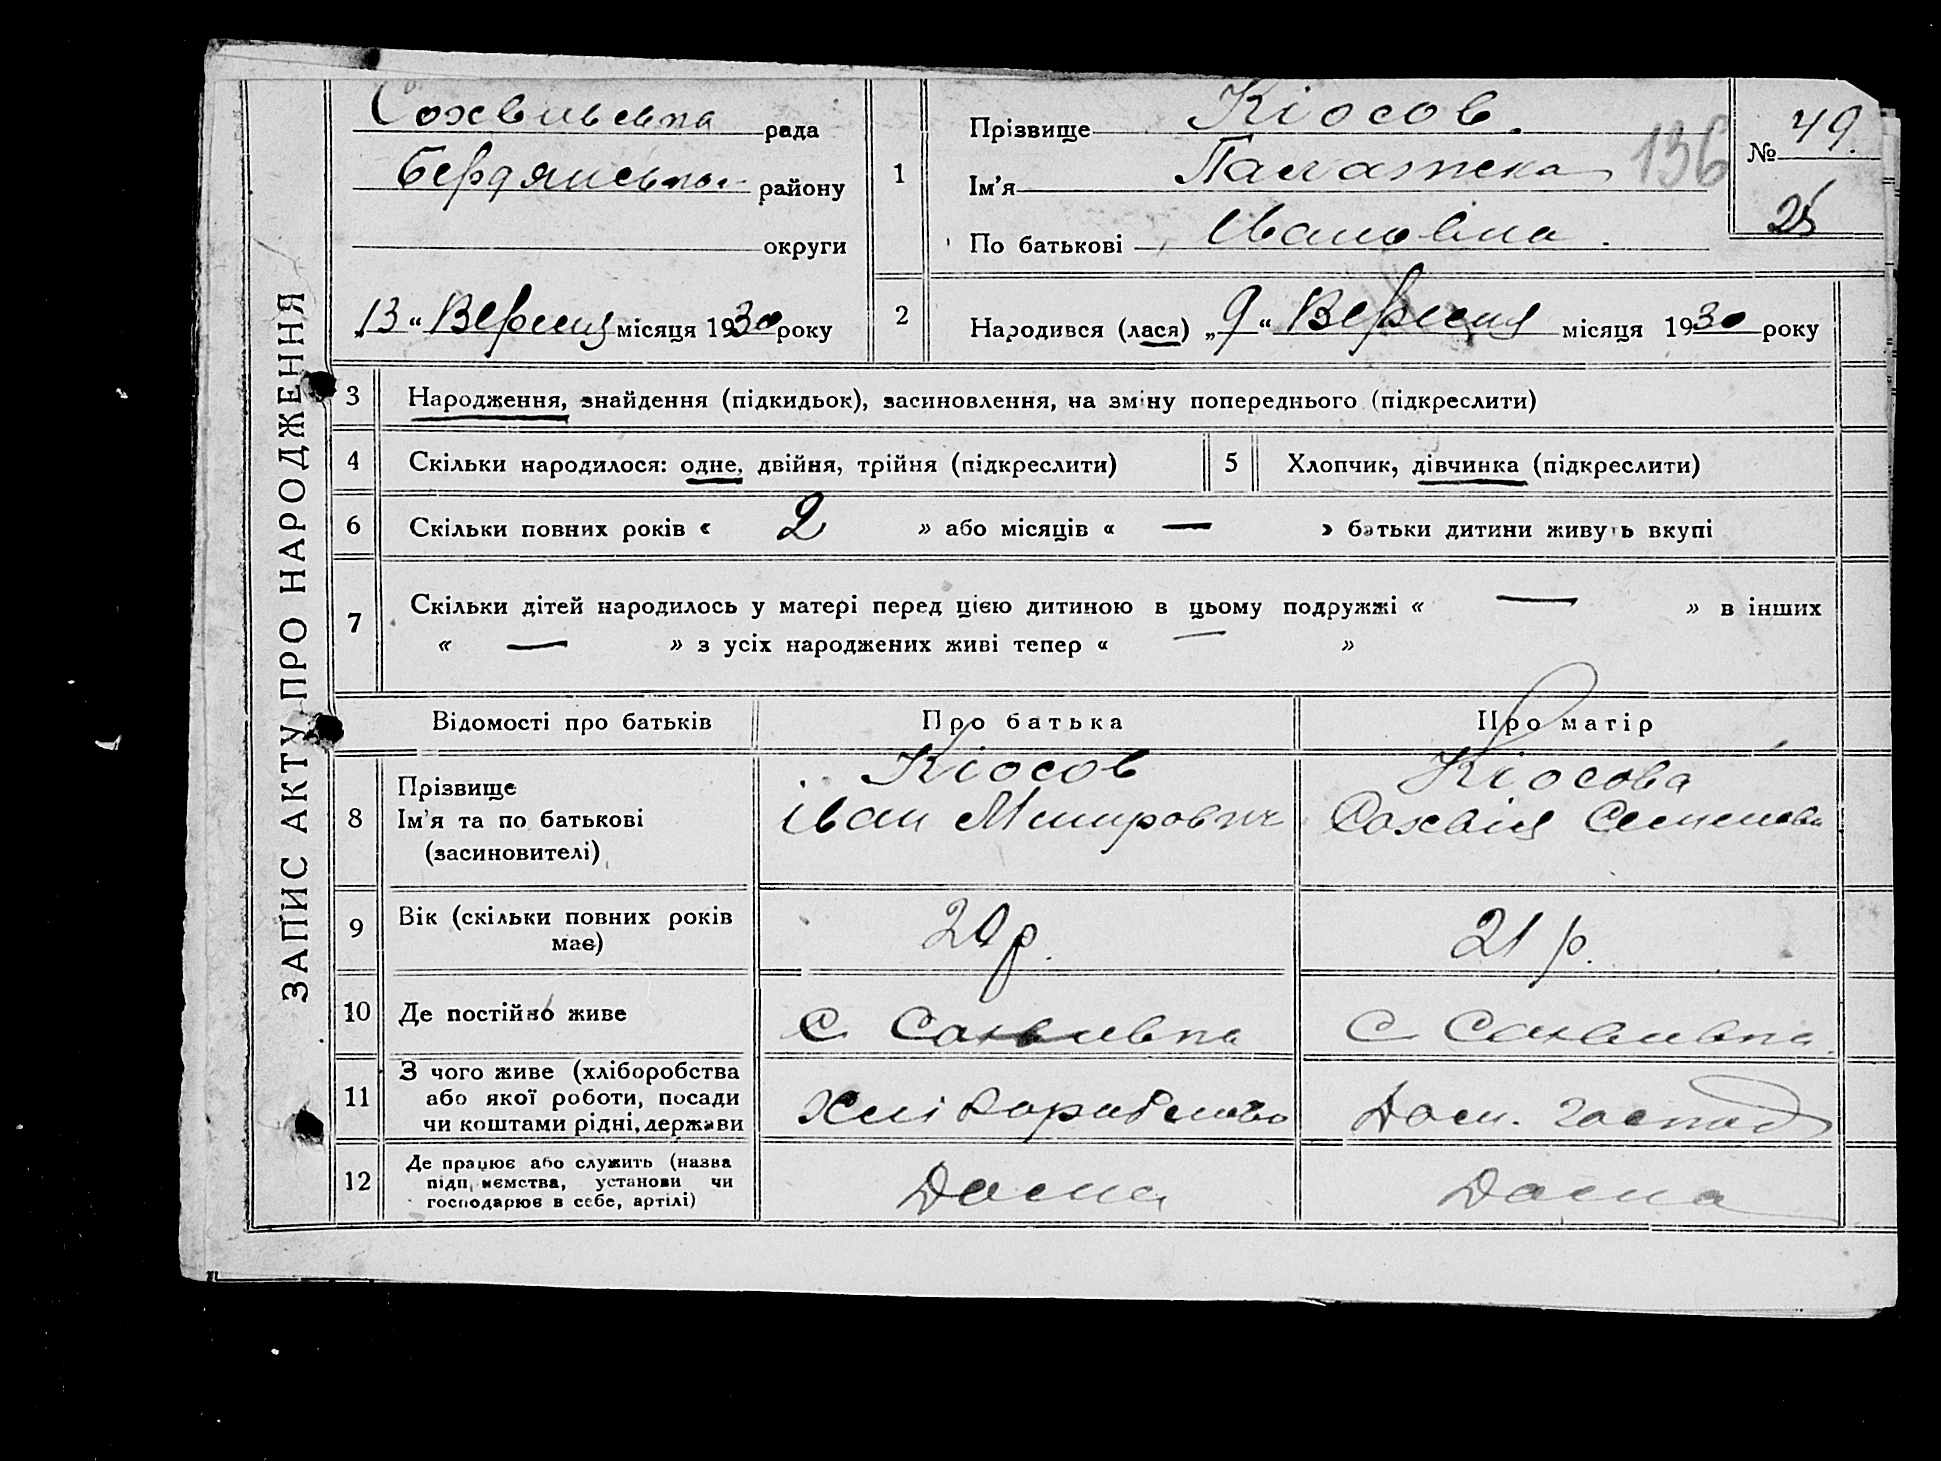 ЗАПИС АКТУ ПРО НАРОДЖЕННЯ
Сохвиська рада
Бердянського району
округи
„13“ Вересня місяця 1930 року
1
Прізвище Кіосов.
Ім'я Палажка
По батькові Івановна.
136
№ 49.
28
2
Народився (лася) „9“ Вересня місяця 1930 року
3 Народження, знайдення (підкидьок), засиновлення, на зміну попереднього (підкреслити)
4 Скільки народилося: одне, двійня, трійня (підкреслити)
5 Хлопчик, дівчинка (підкреслити)
6 Скільки повних років « 2 » або місяців « — » батьки дитини живуть вкупі
7 Скільки дітей народилось у матері перед цією дитиною в цьому подружжі « — » в інших
« — » з усіх народжених живі тепер « — »
Відомості про батьків Про батька Про матір
8 Прізвище
Ім'я та по батькові
(засиновителі)
Кіосов
Іван
Кіосова
Сохвія Семеновн
9 Вік (скільки повних років
має)
20 р.
21 р.
10 Де постійно живе
с Сохвиевка
с Сохвиевка
11 З чого живе (хліборобства
або якої роботи, посади
чи коштами рідні, держави
Хліборобство
Дом. господ
12 Де працює або служить (назва
підприємства, установи чи
господарює в себе, артілі)
Дома
Дома